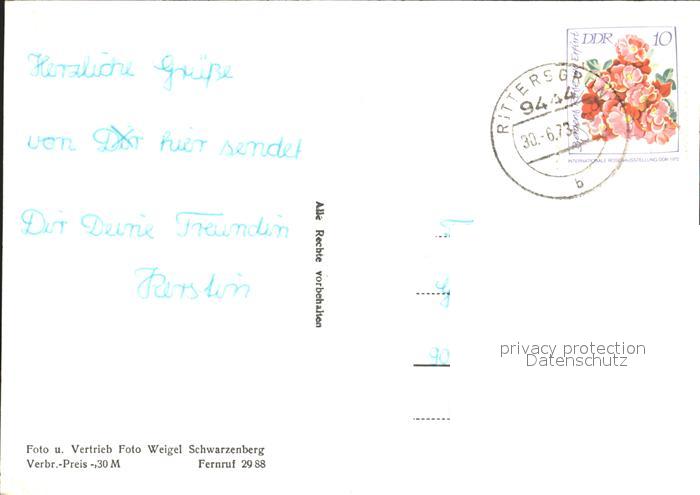 Herzliche Grüße
von Dir hier sendet
Dir Deine Freundin
Kerstin
Alle Rechte vorbehalten
DDR 10
INTERNATIONALE ROSENAUSSTELLUNG DDR 1972
9444
30.-6.73
b
90
privacy protection
Datenschutz
Foto u. Vertrieb Foto Weigel Schwarzenberg
Verbr.-Preis -,30 M Fernruf 29 88